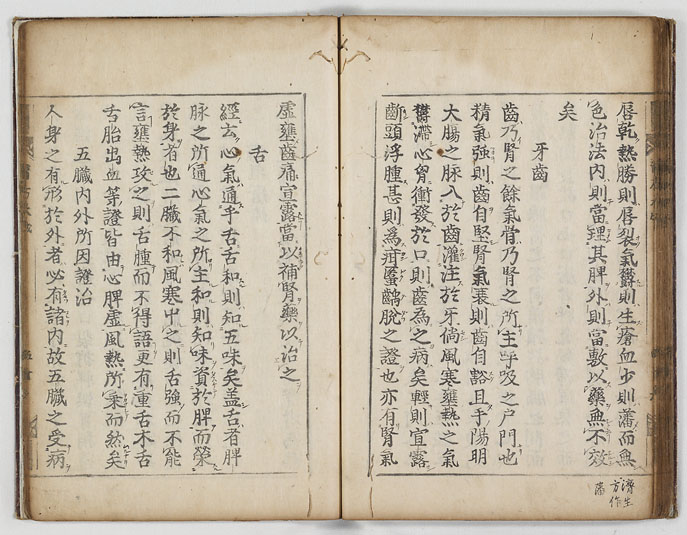 唇乾熱勝則唇裂氣欝則生瘡血少則瀋而無
色治法内則當理其脾外則當敷以藥無不效
矣
牙齒
齒乃腎之餘氣骨乃腎之所主呼吸之户門也
精氣強則齒自堅腎氣衰則齒自豁且手陽明
大腸之脉入於齒灌注於牙倘風寒壅熱之氣
欝滯心胷衝發於口則齒為之病矣輕則宣露
齗頭浮腫甚則為疳䘌齲脫之證也亦有腎氣
虛壅齒痛宣露當以補腎藥以治之
舌
經云心氣通乎舌舌和則知五味矣盖舌者脾
脉之所通心氣之所主和則知味資於脾而榮
於身者也二臟不和風寒中之則舌強而不能
言壅熱攻之則舌腫而不得語更有重舌木舌
舌胎出血等證皆由心脾虛風熱所乘而然矣
五臟内外所因證治
人身之有形於外者必有諸内故五臟之受病
濟生
方作
瀋